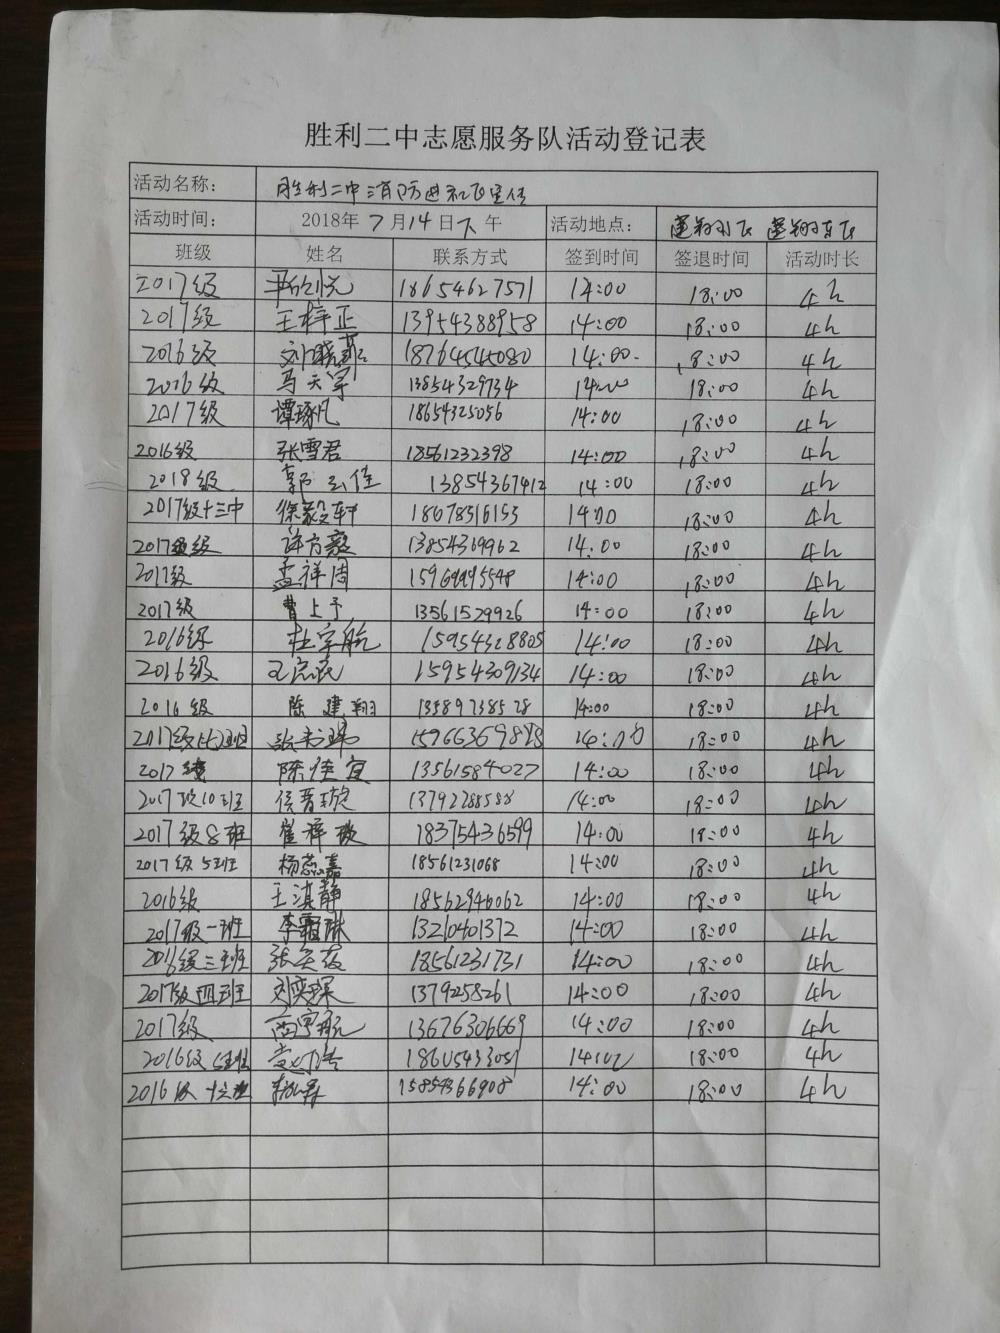 胜利二中志愿服务队活动登记表
活动名称： 胜利二中消防进社区宣传
活动时间： 2018年7月14日下午 活动地点：
班级 姓名 联系方式 签到时间 签退时间 活动时长
2017级 18654627571 14:00 18:00 4h
2017级 王梓正 13954388958 14:00 18:00 4h
2016级 18764545080 14:00 18:00 4h
2016级 马天宇 13854329734 14:00 18:00 4h
2017级 谭琢凡 18654325056 14:00 18:00 4h
2016级 张雪君 18561232398 14:00 18:00 4h
2018级 郭云佳 13854367412 14:00 18:00 4h
2017级十三中 徐毅轩 18678316153 14:00 18:00 4h
2017级 许方毅 13854369962 14:00 18:00 4h
2017级 孟祥周 14:00 18:00 4h
2017级 曹上予 13561529926 14:00 18:00 4h
2016级 杜宇航 15954328805 14:00 18:00 4h
2016级 15954309134 14:00 18:00 4h
2016级 陈建翔 13589738528 14:00 18:00 4h
2017级 14:00 18:00 4h
2017级 陈佳宜 13561584027 14:00 18:00 4h
2017级10班 侯晋璇 13792288588 14:00 18:00 4h
2017级8班 崔梓璇 18375436599 14:00 18:00 4h
2017级5班 杨蕊嘉 18561231068 14:00 18:00 4h
2016级 王淇静 18562946062 14:00 18:00 4h
2017级一班 李霜琳 13210401372 14:00 18:00 4h
2016级三班 18561231731 14:00 18:00 4h
2017级四班 刘奕琛 1379258261 14:00 18:00 4h
2017级 高宇航 13676306669 14:00 18:00 4h
2016级 18605433051 14:00 18:00 4h
2016级 15854366908 14:00 18:00 4h